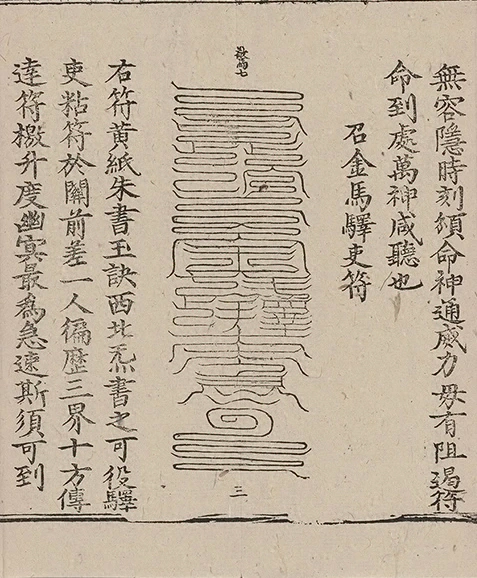 無容隱時刻須命神通威力毋有阻遏符
命到處萬神咸聽也
召金馬驛吏符
右符黄紙朱書玉訣西北炁書之可役驛
吏粘符於關前差一人徧歷三界十方傳
達符檄升度幽冥最為急速斯須可到
三